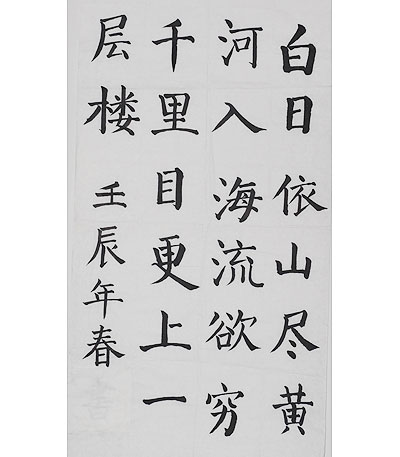 白日依山尽黄
河入海流欲穷
千里目更上一
层楼 壬辰年春